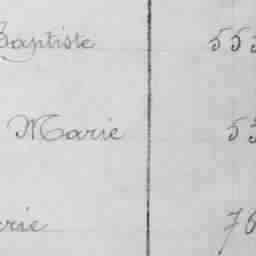 Baptiste 553
Marie 53
erie 76